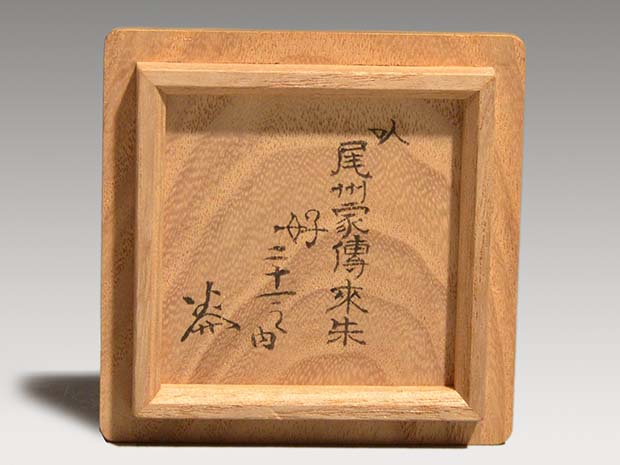 以尾州家傳來朱
好二十一之内